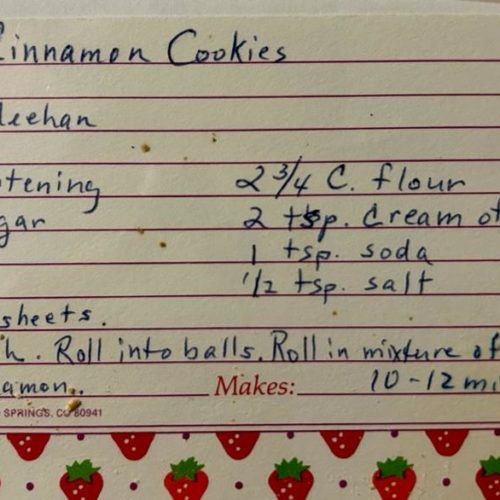 Cinnamon Cookies
eehan
tening 2 3/4 C. flour
gar 2 tsp. Cream of
1 tsp. soda
1/2 tsp. salt
sheets.
h. Roll into balls. Roll in mixture of
amon. Makes: 10-12 mi
SPRINGS, CO 80941